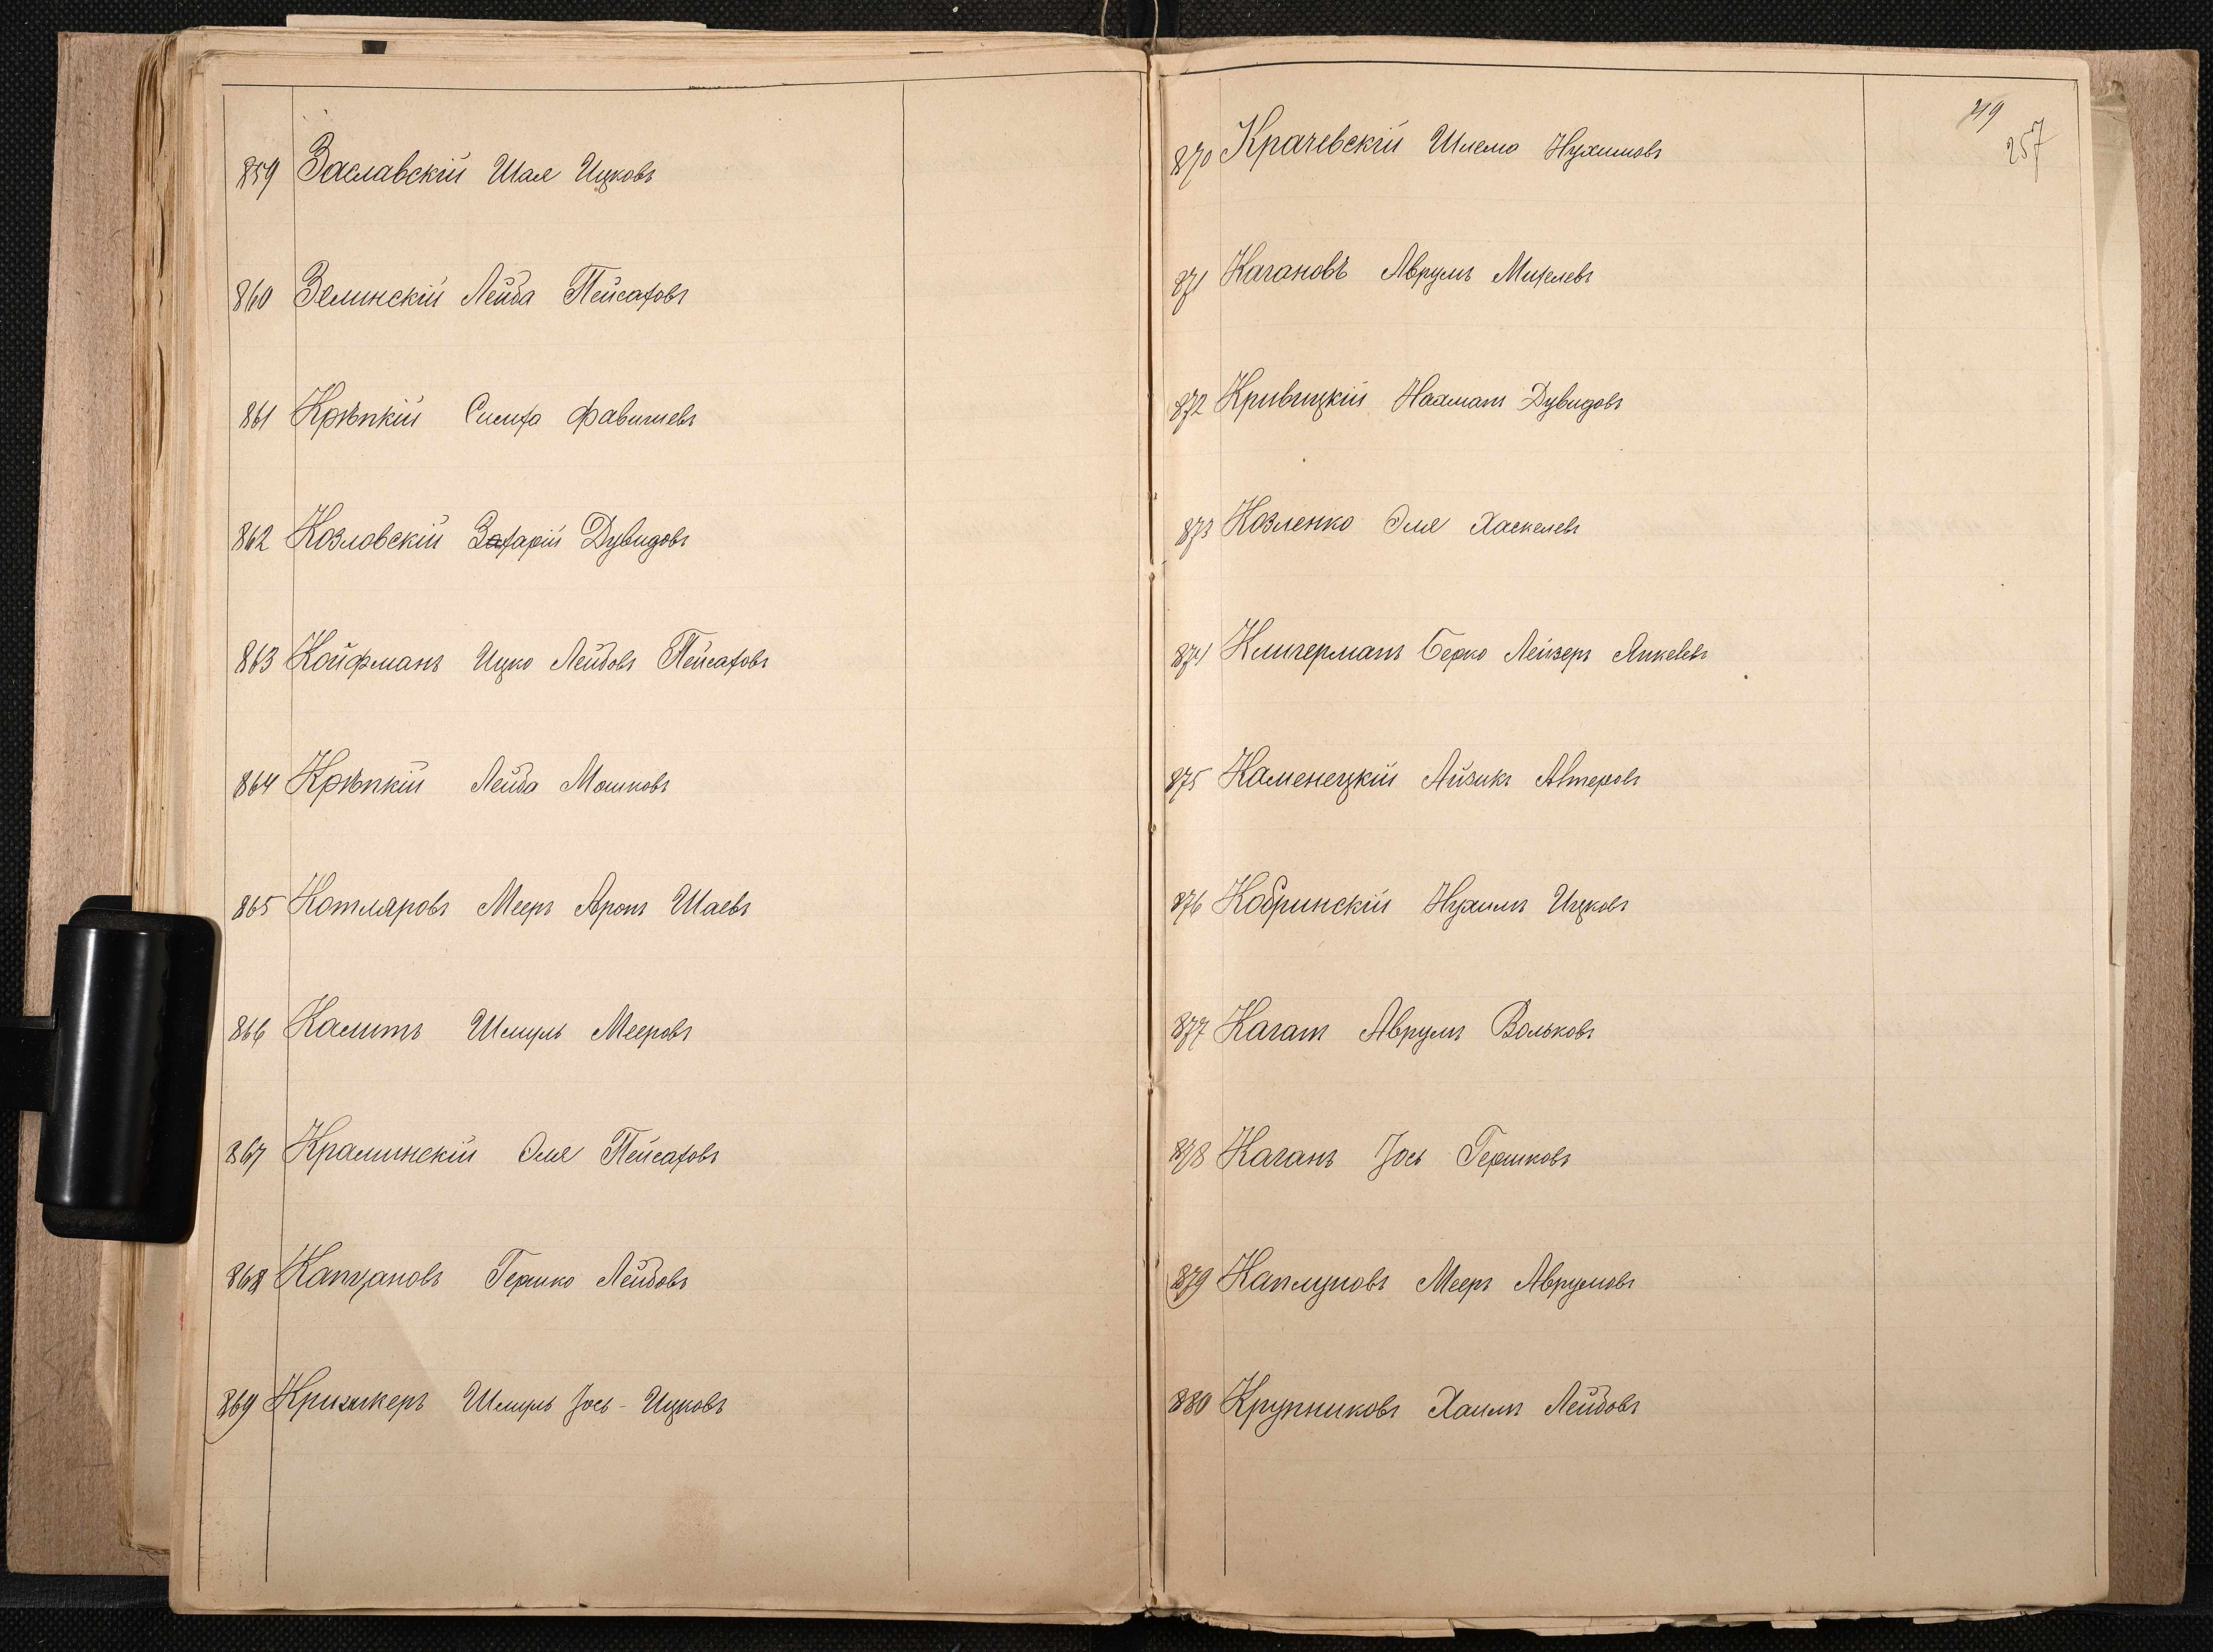 859 Заславскій Шая Ицковъ
860 Зелинскій Лейба Пейсаховъ
861 Крѣпкій Симха Фавишевъ
862 Козловскій Захарій Дувидовъ
863 Койфманъ Ицко Лейбовъ Пейсаховъ
864 Крѣпкій Лейба Мошковъ
865 Котляровъ Мееръ Аронъ Шаевъ
866 Калитъ Шмуль Мееровъ
867 Крапинскій Эля Пейсаховъ
868 Капцановъ Гершко Лейбовъ
869 Шмуль Іось-Ицковъ
219
257
870 Крачевскій Шлема Нухимовъ
871 Кагановъ Аврумъ Михелевъ
872 Кривицкій Нахманъ Дувидовъ
873 Козленко Эля Хаскелевъ
874 Клигерманъ Берко Лейзеръ Янкелевъ
875 Каменецкій Айзикъ Алтеровъ
876 Кобринскій Нухимъ Ицковъ
877 Каганъ Аврумъ Вольковъ
878 Каганъ Іось Гершковъ
879 Каплуновъ Мееръ Аврумовъ
880 Крупниковъ Хаимъ Лейбовъ